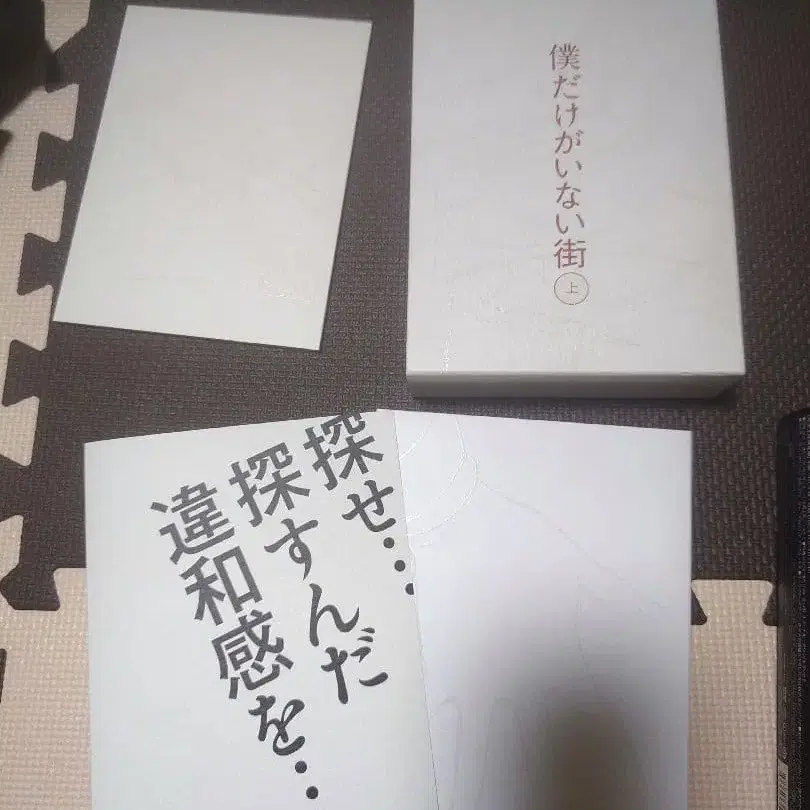 僕だけがいない街
上
探せ・・・
探すんだ
違和感を・・